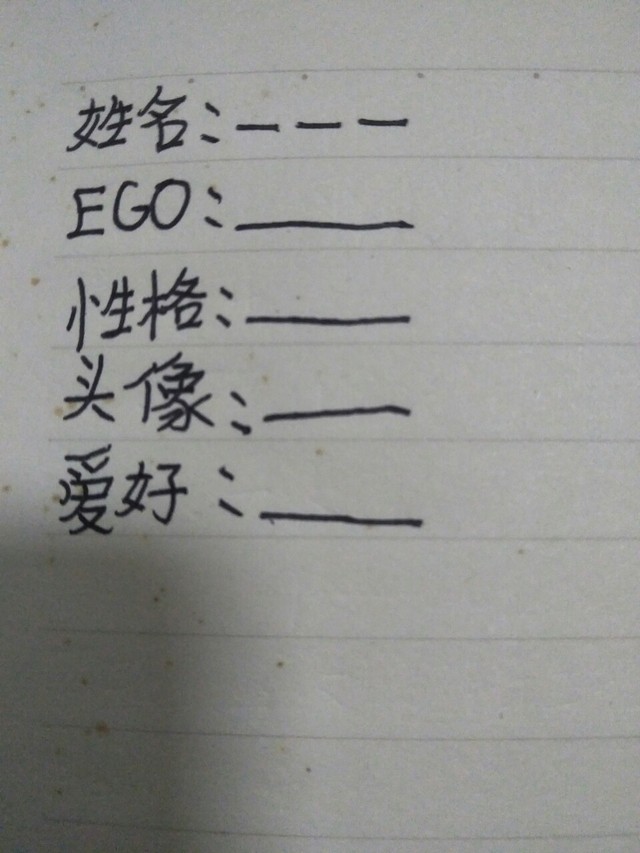 姓名:— — —
EGO:______
性格:______
头像:______
爱好:______